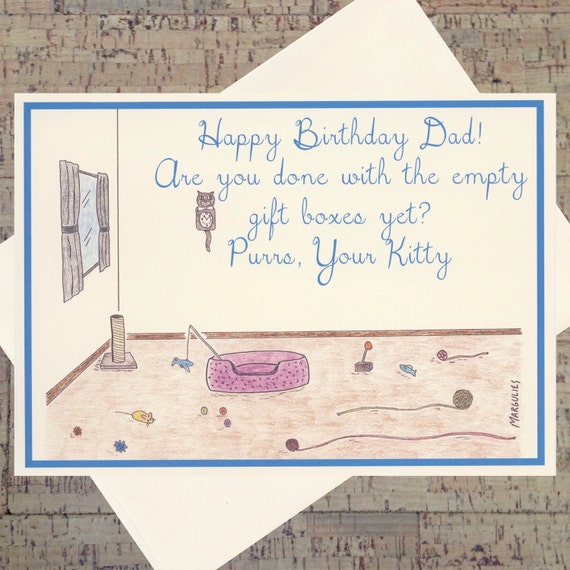 Happy Birthday Dad!
Are you done with the empty
gift boxes yet?
Purrs, Your Kitty
MARGULIES